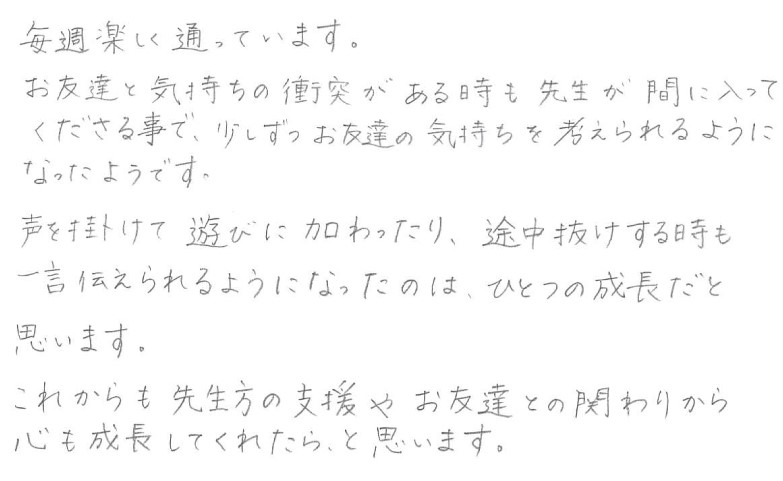 毎週楽しく通っています。
お友達と気持ちの衝突がある時も先生が間に入って
くださる事で、少しずつお友達の気持ちを考えられるように
なったようです。
声を掛けて遊びに加わったり、途中抜けする時も
一言伝えられるようになったのは、ひとつの成長だと
思います。
これからも先生方の支援やお友達との関わりから
心も成長してくれたら、と思います。